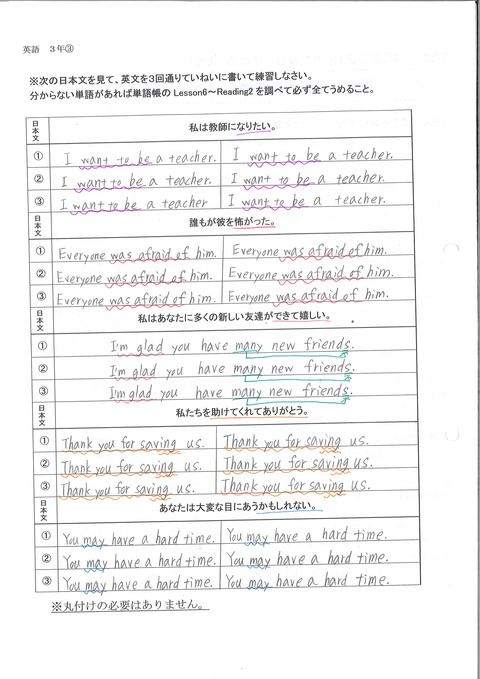 英語 3年③
※次の日本文を見て、英文を3回通りていねいに書いて練習しなさい。
分からない単語があれば単語帳の Lesson6～Reading2 を調べて必ず全てうめること。
日本文 私は教師になりたい。
① I want to be a teacher. I want to be a teacher.
② I want to be a teacher. I want to be a teacher.
③ I want to be a teacher I want to be a teacher.
日本文 誰もが彼を怖がった。
① Everyone was afraid of him. Everyone was afraid of him.
② Everyone was afraid of him. Everyone was afraid of him.
③ Everyone was afraid of him. Everyone was afraid of him.
日本文 私はあなたに多くの新しい友達ができて嬉しい。
① I'm glad you have many new friends.
② I'm glad you have many new friends.
③ I'm glad you have many new friends.
日本文 私たちを助けてくれてありがとう。
① Thank you for saving us. Thank you for saving us.
② Thank you for saving us. Thank you for saving us.
③ Thank you for saving us. Thank you for saving us.
日本文 あなたは大変な目にあうかもしれない。
① You may have a hard time. You may have a hard time.
② You may have a hard time. You may have a hard time.
③ You may have a hard time. You may have a hard time.
※丸付けの必要はありません。